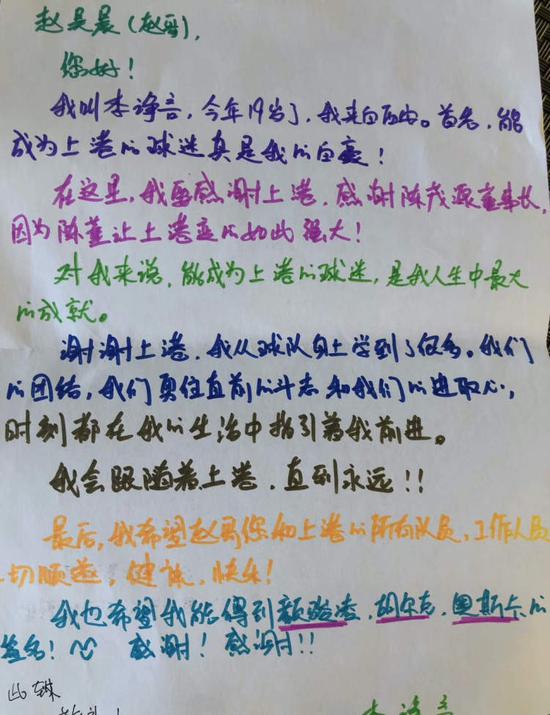 赵昊晨（赵哥），
您好！
我叫李诤言，今年19岁了，我来自西安。首先，能
成为上港的球迷真是我的自豪！
在这里，我要感谢上港，感谢陈戌源董事长，
因为陈董让上港变的如此强大！
对我来说，能成为上港的球迷，是我人生中最大
的成就。
谢谢上港，我从球队身上学到了很多。我们
的团结，我们勇往直前的斗志和我们的进取心，
时刻都在我的生活中指引着我前进。
我会跟随着上港，直到永远！！
最后，我希望赵哥您和上港的所有队员，工作人员
一切顺遂，健康，快乐！
我也希望我能得到颜骏凌，胡尔克，奥斯卡的
签名！感谢！感谢！！
此致